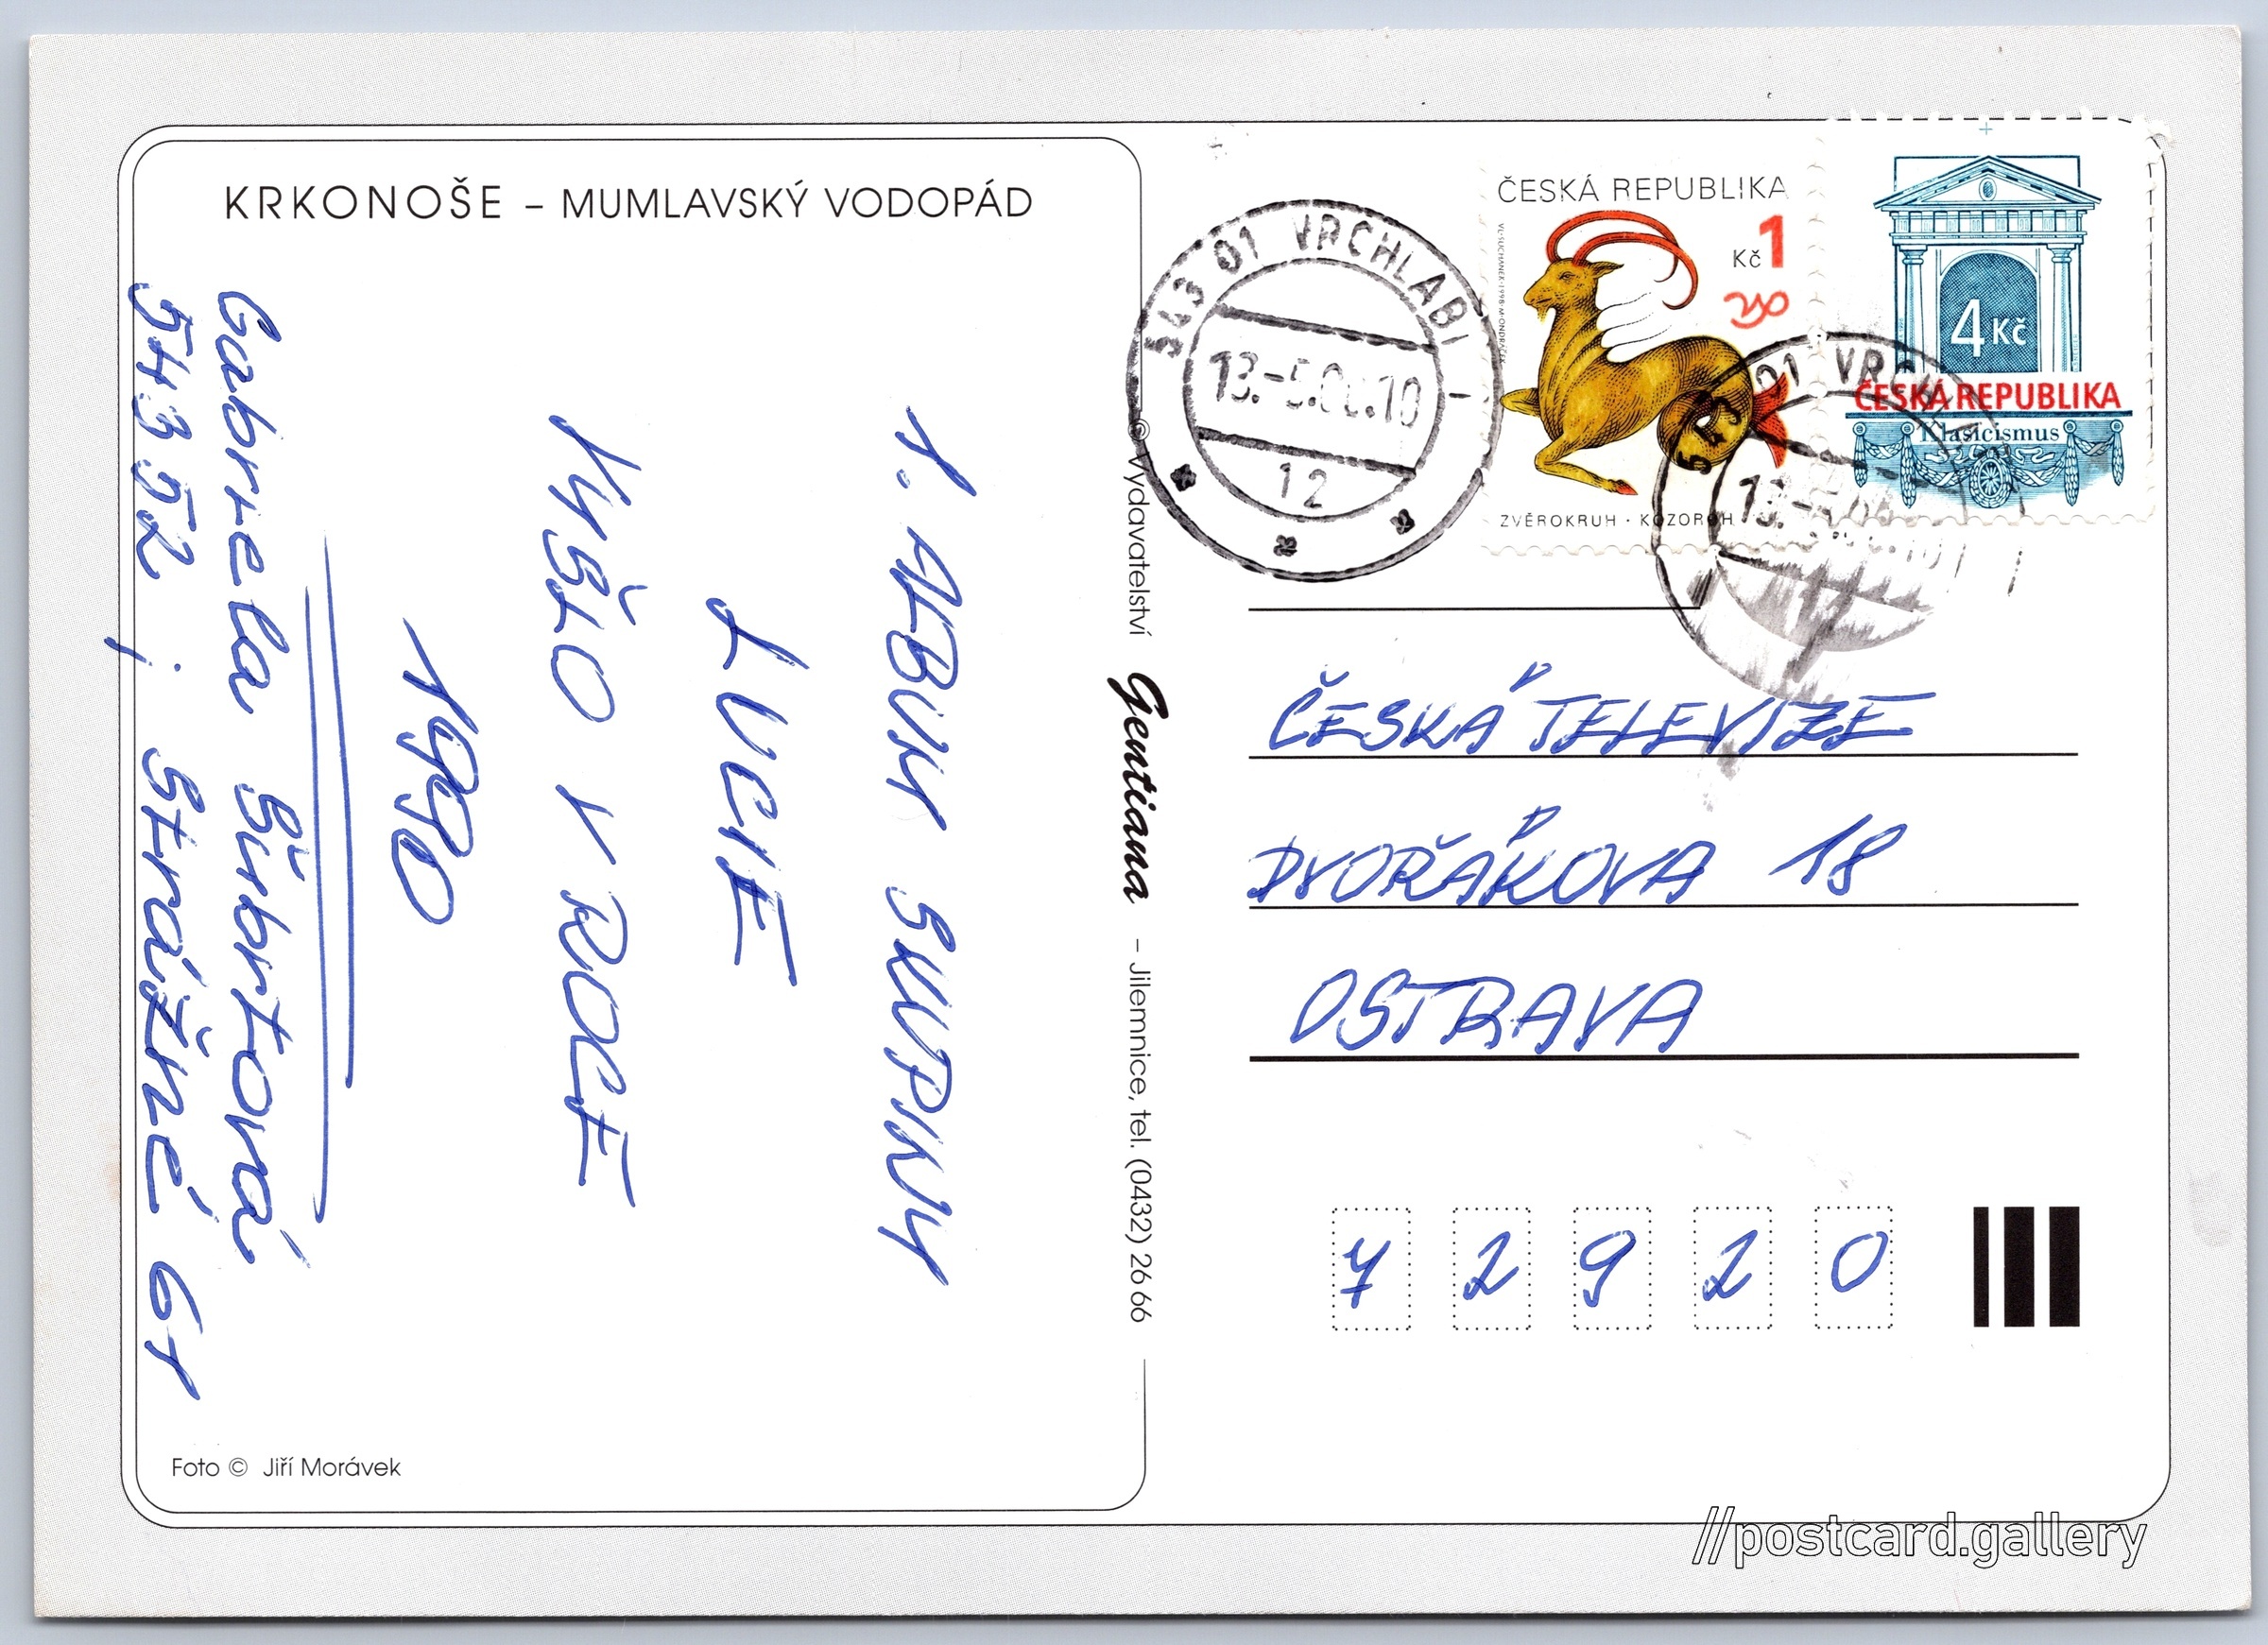 KRKONOŠE – MUMLAVSKÝ VODOPÁD
1. ALBUM SKUPINY
LUCIE
VYŠLO V ROCE
1990
Gabriela Šubrtová
543 52 ; Strážné 61
Foto © Jiří Morávek
© Vydavatelství Gentiana – Jilemnice, tel. (0432) 26 66
543 01 VRCHLABÍ 1
12
ČESKÁ REPUBLIKA
Kč 1
ZVĚROKRUH · KOZOROH
4 Kč
ČESKÁ REPUBLIKA
Klasicismus
ČESKÁ TELEVIZE
DVOŘÁKOVA 18
OSTRAVA
72920
//postcard.gallery